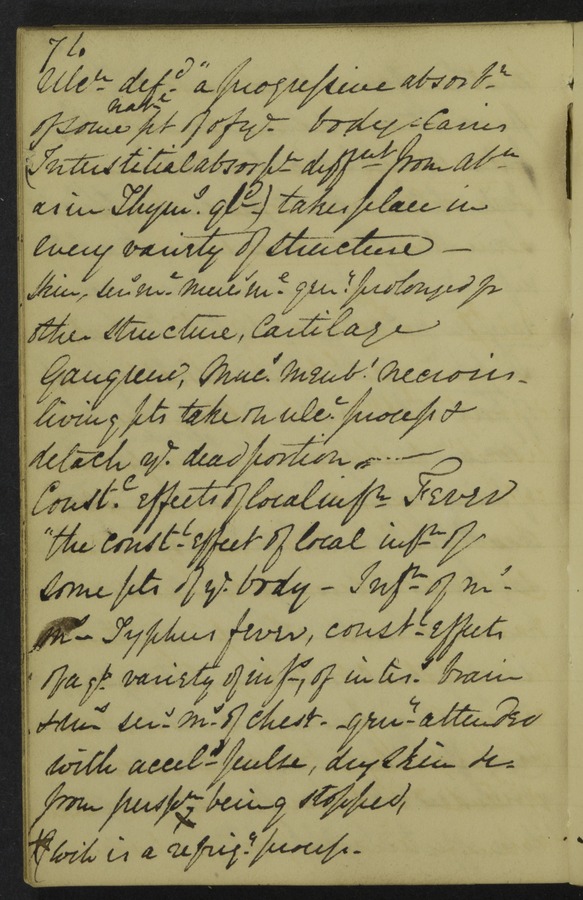 71.
Ulcn. defd. "a progressive absorbn.
of some pt of yr. body - Caries
(Interstitial absorptn. diffent from abn
as in Thyms. gld.) takes place in
every variety of structure -
Skin, sers. mucs. mne. genly. prolonged fr
other structure, Cartilage
Gangrene, Mucs. Memb. necrosis -
living pts take on ulce. process &
detach ye. dead portion
Constl. effects of local infln. Fever
"the constl. effect of local infln of
some pts of ye. body - Infln. of ms.
Typhus fever, constl. effects
of a gt. variety of infln, of intess. brain
sers. ms. of chest - genly. attended
with acceld. pulse, dry skin
from perspn being stopped,
(wch is a refrigg. process -